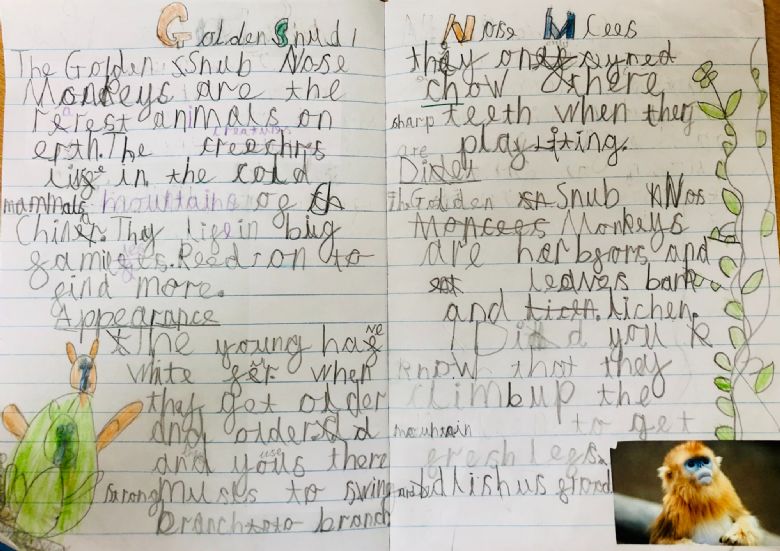 Golden Snub
The Golden Snub Nose
Monkeys are the
rerest animals on
erth. The creechrs
live in the cold
mammals mountains of
China. Thy live in bug
families. Reed on to
find more.
Appearance
The young have
white fer when
they get older
and
and use there
strong musls to swing
branch to branch
Nose Mcees
they only
chow there
sharp teeth when they
are play fiting.
Ditet
The Golden Snub Nos
Moncees Monkeys
are herbfors and
eat leaves bark
and lichen.
Did you
know that they
climb up the
mountain to get
fresh lefs
and dlishus food